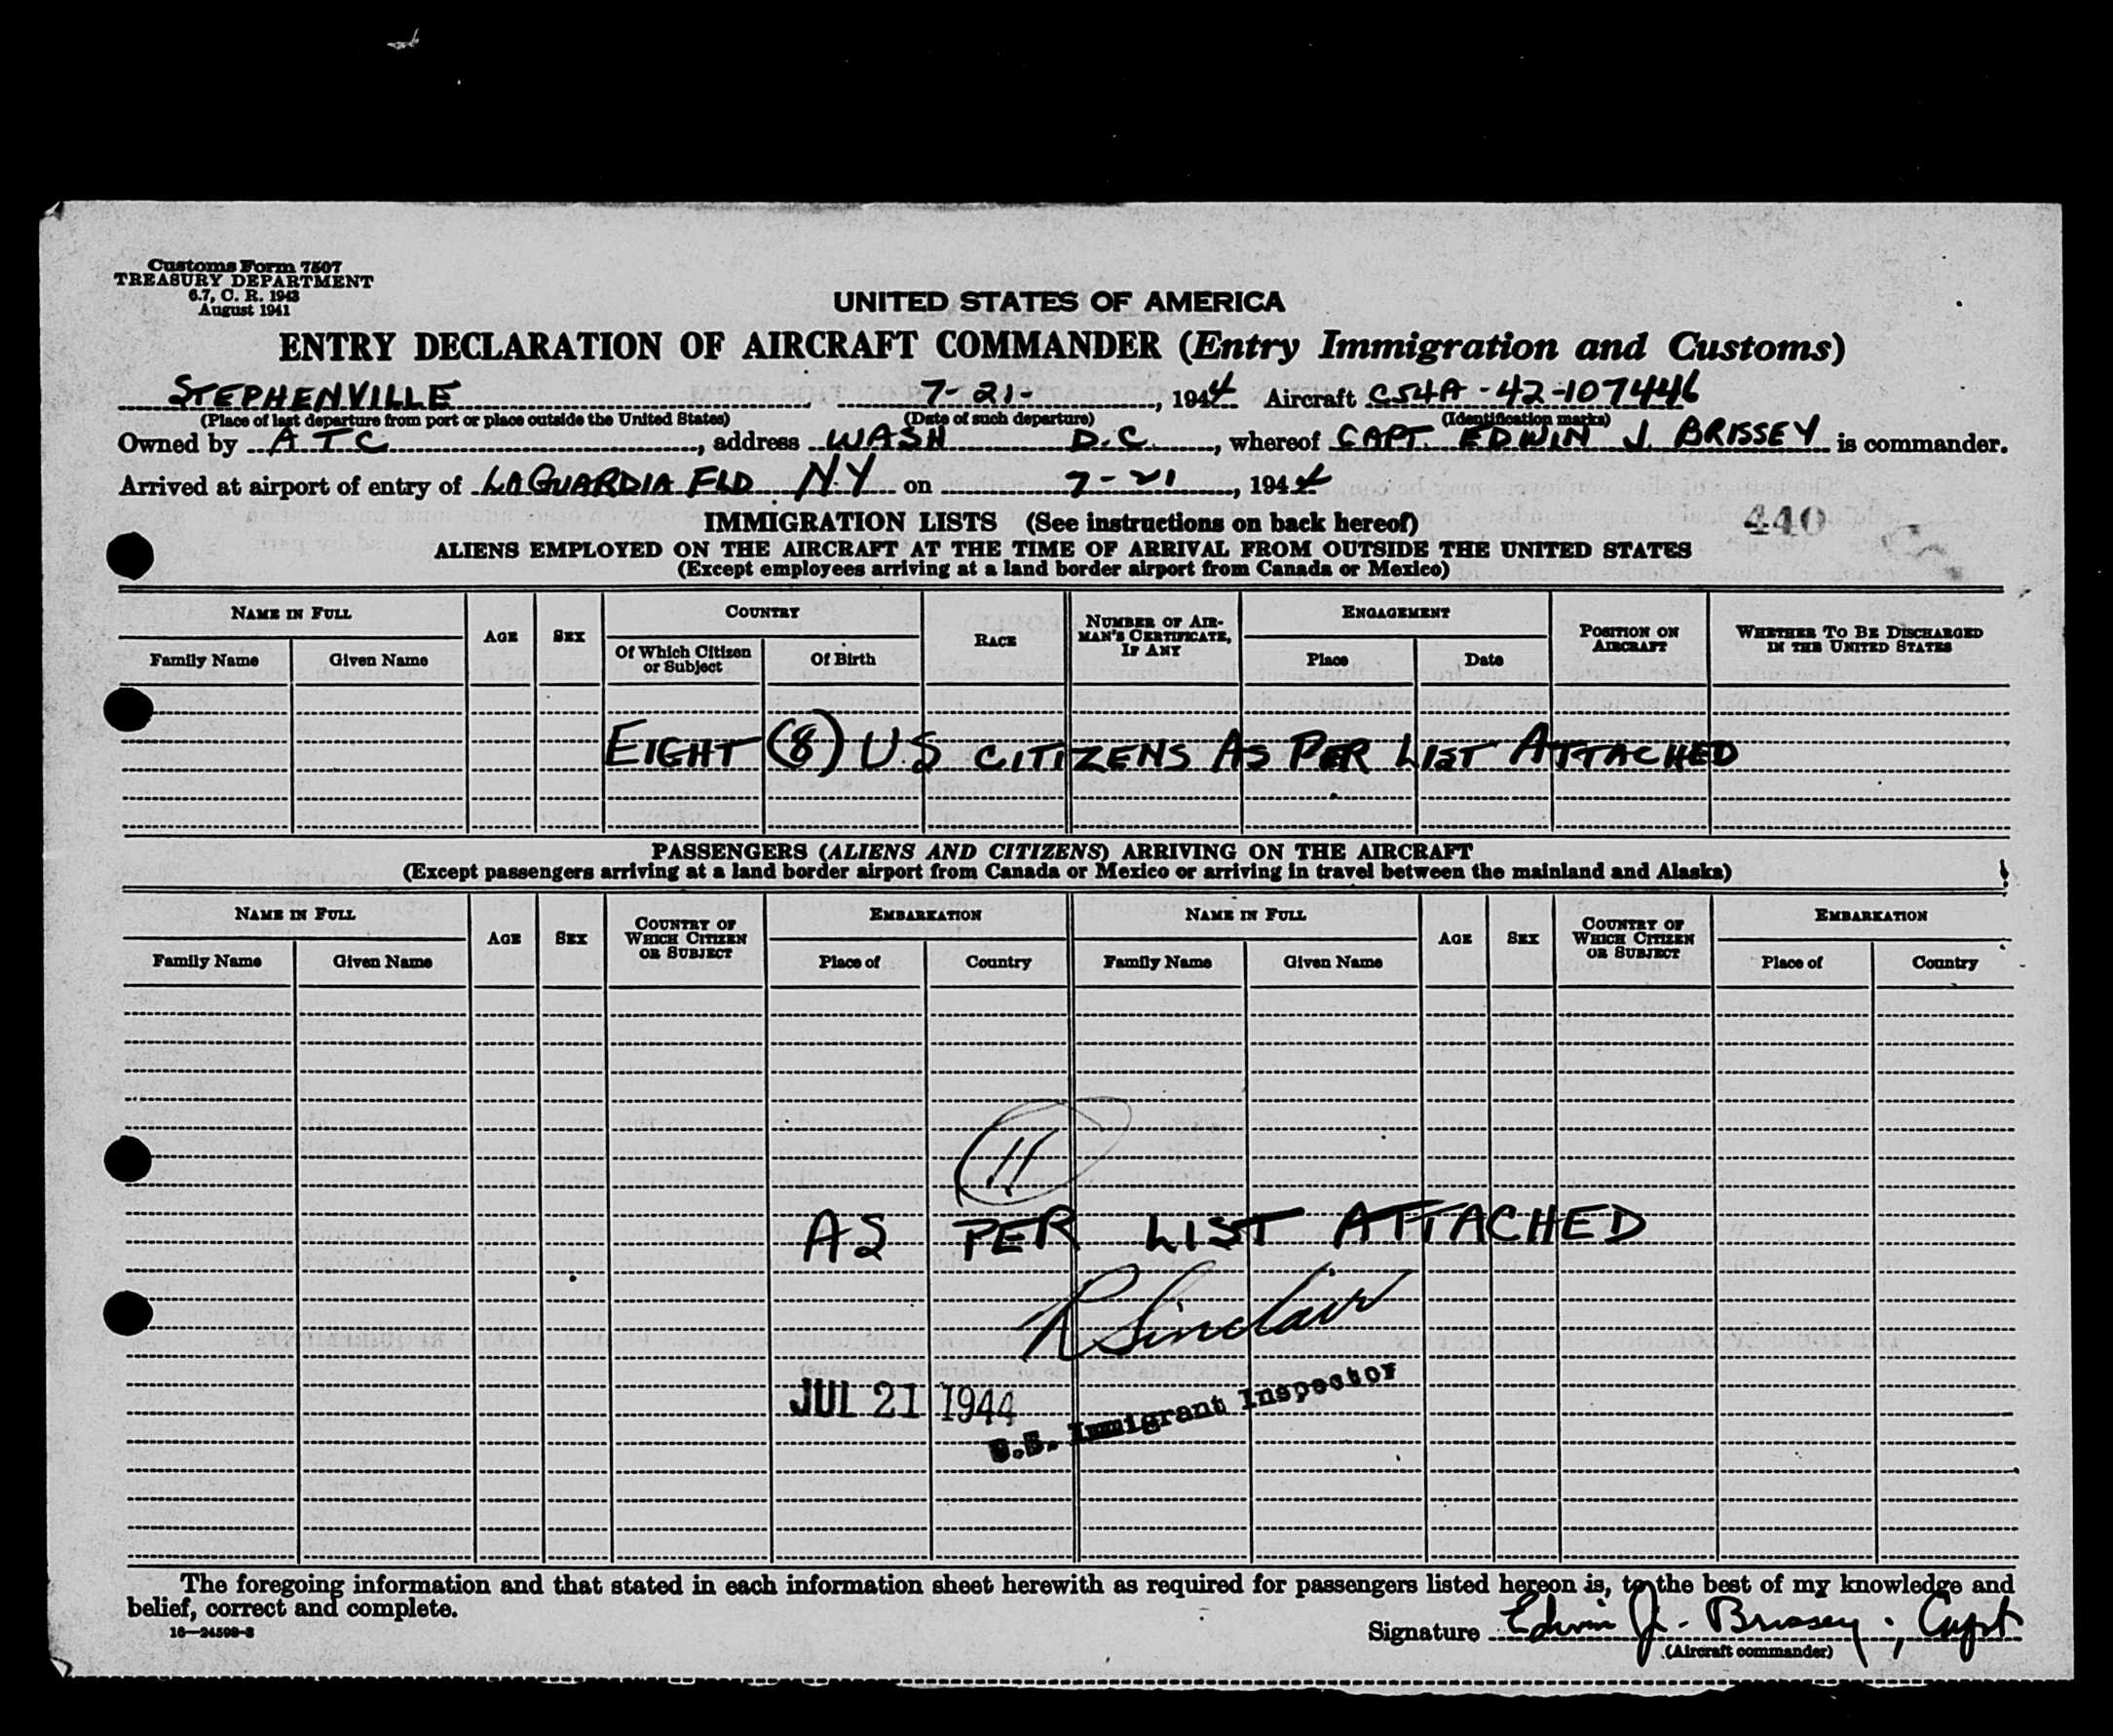 Customs Form 7507
TREASURY DEPARTMENT
6.7, C. R. 1943
August 1941
UNITED STATES OF AMERICA
ENTRY DECLARATION OF AIRCRAFT COMMANDER (Entry Immigration and Customs)
STEPHENVILLE 7-21-, 1944 Aircraft C54A-42-107446
(Place of last departure from port or place outside the United States) (Date of such departure) (Identification marks)
Owned by ATC, address WASH D.C., whereof CAPT. EDWIN J. BRISSEY is commander.
Arrived at airport of entry of LAGUARDIA FLD N.Y. on 7-21, 1944
IMMIGRATION LISTS (See instructions on back hereof)
440
ALIENS EMPLOYED ON THE AIRCRAFT AT THE TIME OF ARRIVAL FROM OUTSIDE THE UNITED STATES
(Except employees arriving at a land border airport from Canada or Mexico)
NAME IN FULL AGE SEX COUNTRY RACE NUMBER OF AIRMAN'S CERTIFICATE, IF ANY ENGAGEMENT POSITION ON AIRCRAFT WHETHER TO BE DISCHARGED IN THE UNITED STATES
Family Name Given Name Of Which Citizen or Subject Of Birth Place Date
EIGHT (8) U.S CITIZENS AS PER LIST ATTACHED
PASSENGERS (ALIENS AND CITIZENS) ARRIVING ON THE AIRCRAFT
(Except passengers arriving at a land border airport from Canada or Mexico or arriving in travel between the mainland and Alaska)
NAME IN FULL AGE SEX COUNTRY OF WHICH CITIZEN OR SUBJECT EMBARKATION NAME IN FULL AGE SEX COUNTRY OF WHICH CITIZEN OR SUBJECT EMBARKATION
Family Name Given Name Place of Country Family Name Given Name Place of Country
11
AS PER LIST ATTACHED
R Sinclair
JUL 21 1944
U.S. Immigrant Inspector
The foregoing information and that stated in each information sheet herewith as required for passengers listed hereon is, to the best of my knowledge and
belief, correct and complete.
16—24599-3
Signature Edwin J. Brissey, Capt
(Aircraft commander)